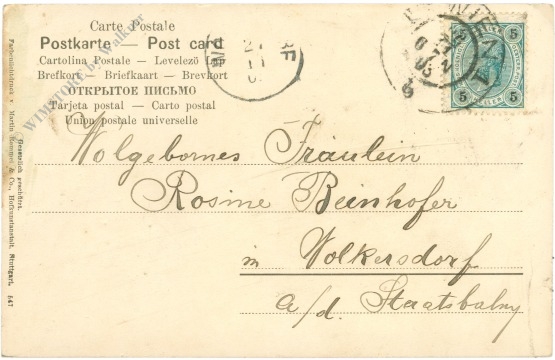 Carte Postale
Postkarte — Post card
Cartolina Postale — Levelező Lap
Brefkort — Briefkaart — Brevkort
ОТКРЫТОЕ ПИСЬМО
Tarjeta postal — Carto postal
Union postale universelle
Wolgebornes Fräulein
Rosine Beinhofer
in Wolkersdorf
a/d. Staatsbahn
5 5
5 5
WIMSTORE by Walkner
Farbenlichtdruck v. Martin Rommel & Co., Hofkunstanstalt, Stuttgart. 547
Gesetzlich geschützt.